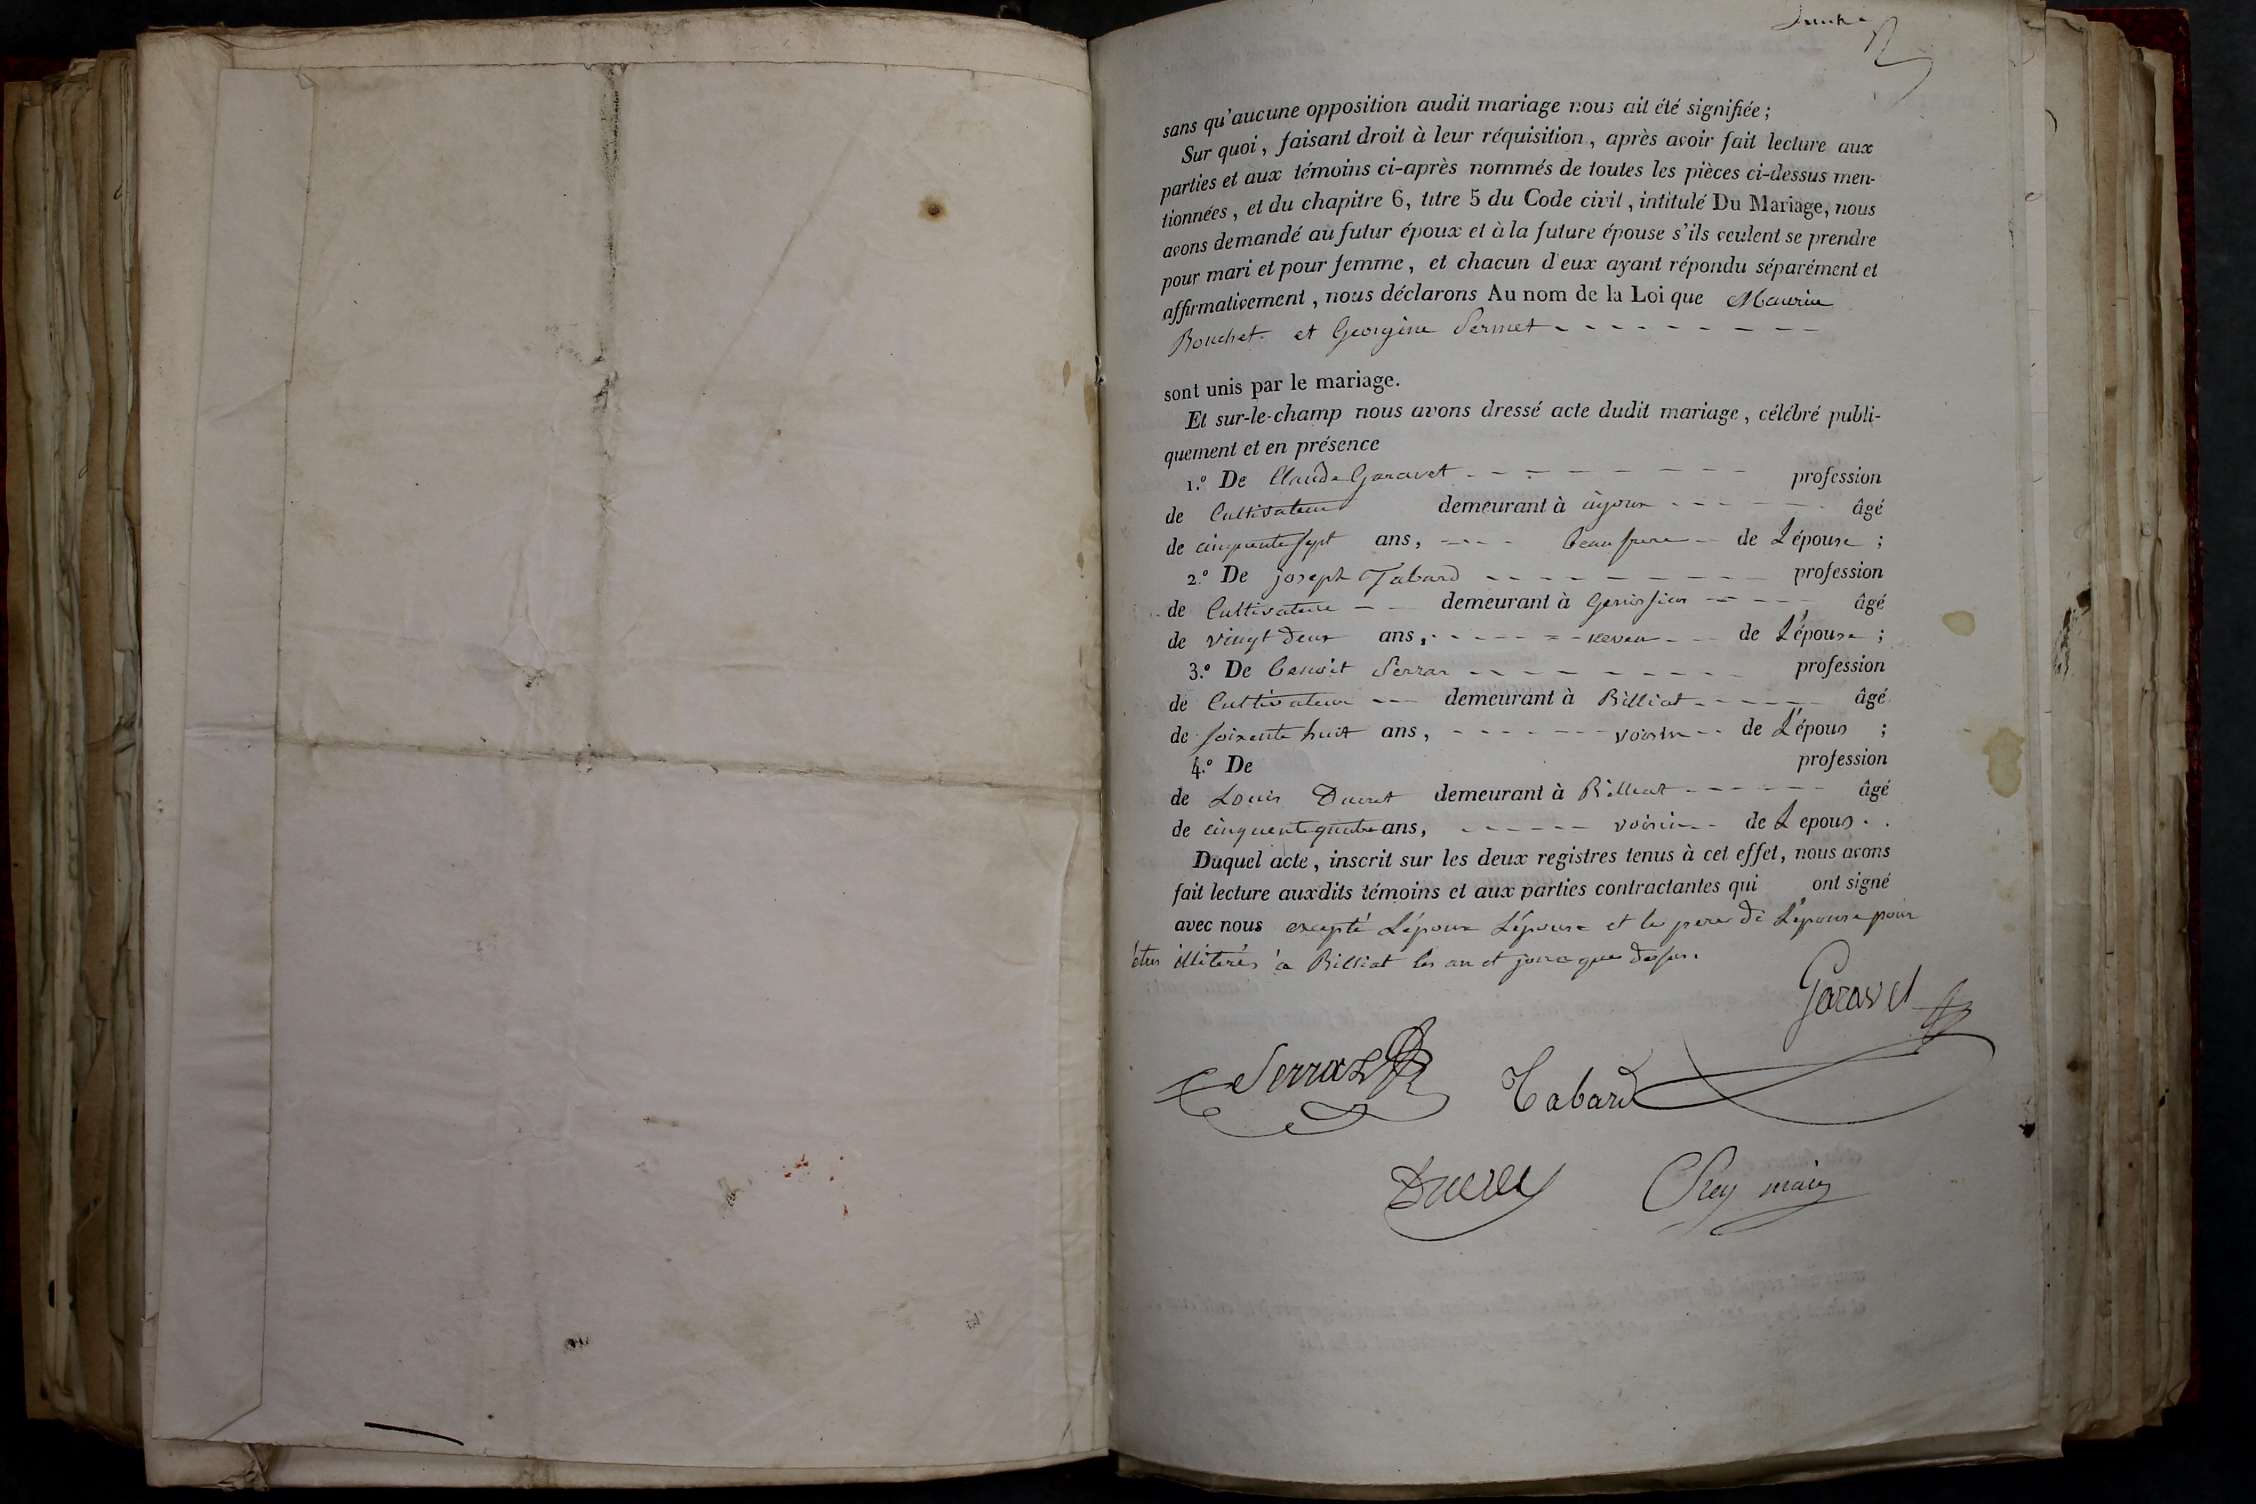 sans qu'aucune opposition audit mariage nous ait été signifiée;
Sur quoi, faisant droit à leur réquisition, après avoir fait lecture aux
parties et aux témoins ci-après nommés de toutes les pièces ci-dessus men-
tionnées, et du chapitre 6, titre 5 du Code civil, intitulé Du Mariage, nous
avons demandé au futur époux et à la future épouse s'ils veulent se prendre
pour mari et pour femme, et chacun d'eux ayant répondu séparément et
affirmativement, nous déclarons Au nom de la Loi que Maurice
Bouchet et Georgine Sermet
sont unis par le mariage.
Et sur-le-champ nous avons dressé acte dudit mariage, célébré publi-
quement et en présence
1.º De Claude Garavet profession
de Cultivateur demeurant à âgé
de cinquente sept ans, beau frere de L'épouse;
2.º De joseph Tabard profession
de Cultivateur demeurant à Genissiat âgé
de vingt deux ans, neveu de L'épouse;
3.º De benoit Serraz profession
de Cultivateur demeurant à Billiat âgé
de soixente huit ans, voisin de L'époux;
4.º De profession
de Louis Ducret demeurant à Billiat âgé
de cinquente quatre ans, voisin de L epoux.
Duquel acte, inscrit sur les deux registres tenus à cet effet, nous avons
fait lecture auxdits témoins et aux parties contractantes qui ont signé
avec nous excepté L'époux L'épouse et le pere de L'épouse pour
être illiterés a Billiat les an et jour que dessus.
Garavet
Serraz
Tabard
Ducret
maire